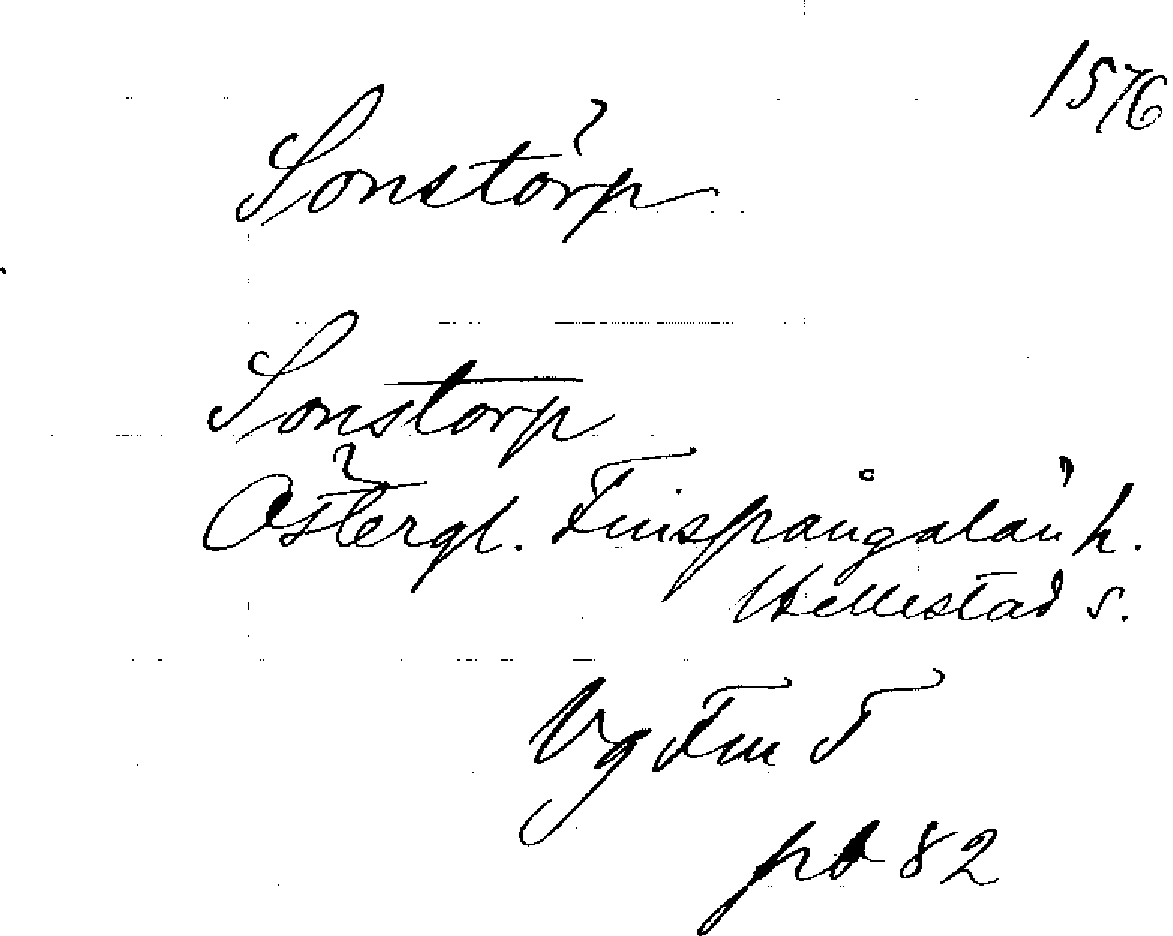 1576
Sonstörp
Sonstorp
Östergl. Finspångalän h.
Hellestad s.
Vg Fin T
82